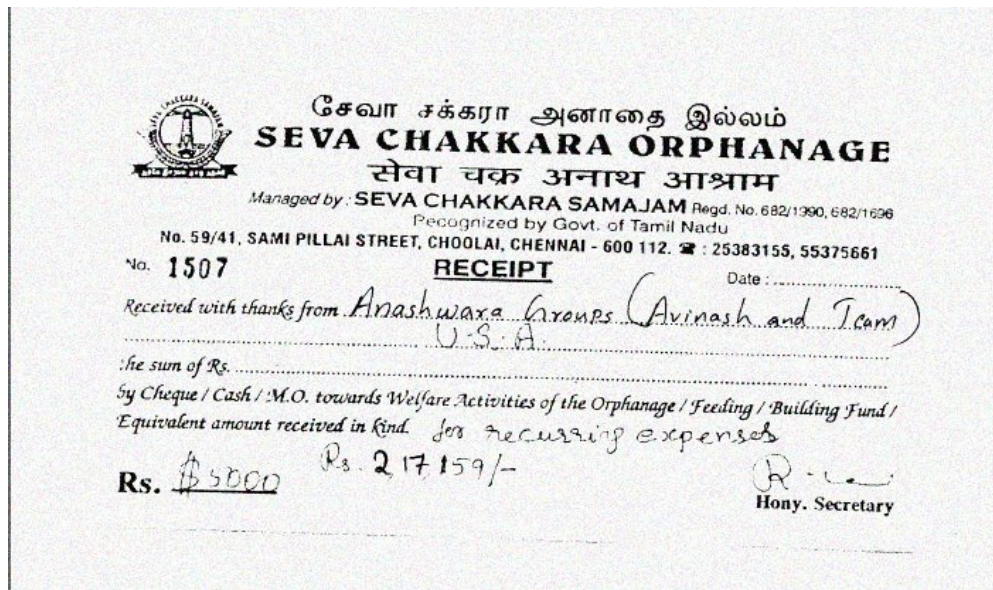 சேவா சக்கரா அனாதை இல்லம்
SEVA CHAKKARA ORPHANAGE
सेवा चक्र अनाथ आश्राम
Managed by : SEVA CHAKKARA SAMAJAM Regd. No. 682/1990, 682/1696
Recognized by Govt. of Tamil Nadu
No. 59/41, SAMI PILLAI STREET, CHOOLAI, CHENNAI - 600 112. ☎ : 25383155, 55375661
No. 1507 RECEIPT Date :
Received with thanks from Anashwara Groups (Avinash and Team)
U.S.A.
the sum of Rs.
by Cheque / Cash / M.O. towards Welfare Activities of the Orphanage / Feeding / Building Fund /
Equivalent amount received in kind. for recurring expenses
Rs. $5000 Rs. 2,17,159/-
Hony. Secretary